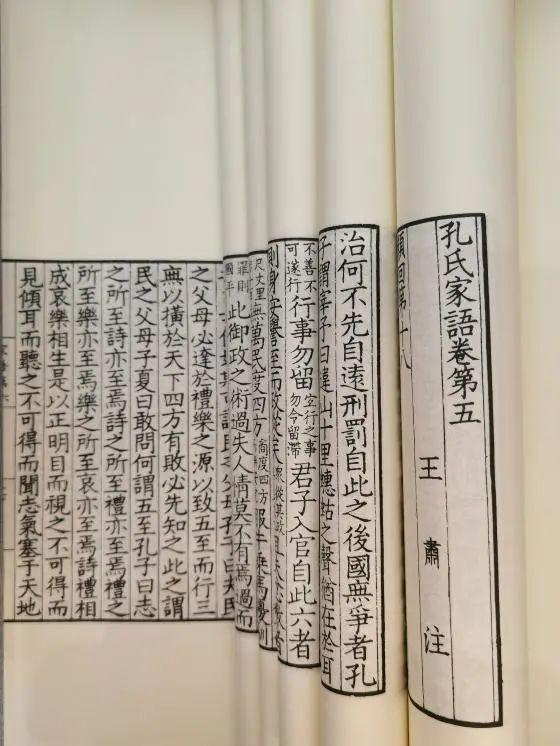 孔氏家語卷第五
王肅注
顏回第十八
治何不先自遠刑罰自此之後國無爭者孔
子謂宰子曰違山十里蟪蛄之聲猶在於耳
不善不可遂行行事勿留空行之事勿令留滯君子入官自此六者
則身安譽至而政從矣
尺丈里無萬民度四方
罪則國平此御政之術過失人情莫不有焉過而
之父母必達於禮樂之源以致五至而行三
無以橫於天下四方有敗必先知之此之謂
民之父母子夏曰敢問何謂五至孔子曰志
之所至詩亦至焉詩之所至禮亦至焉禮之
所至樂亦至焉樂之所至哀亦至焉詩禮相
成哀樂相生是以正明目而視之不可得而
見傾耳而聽之不可得而聞志氣塞于天地